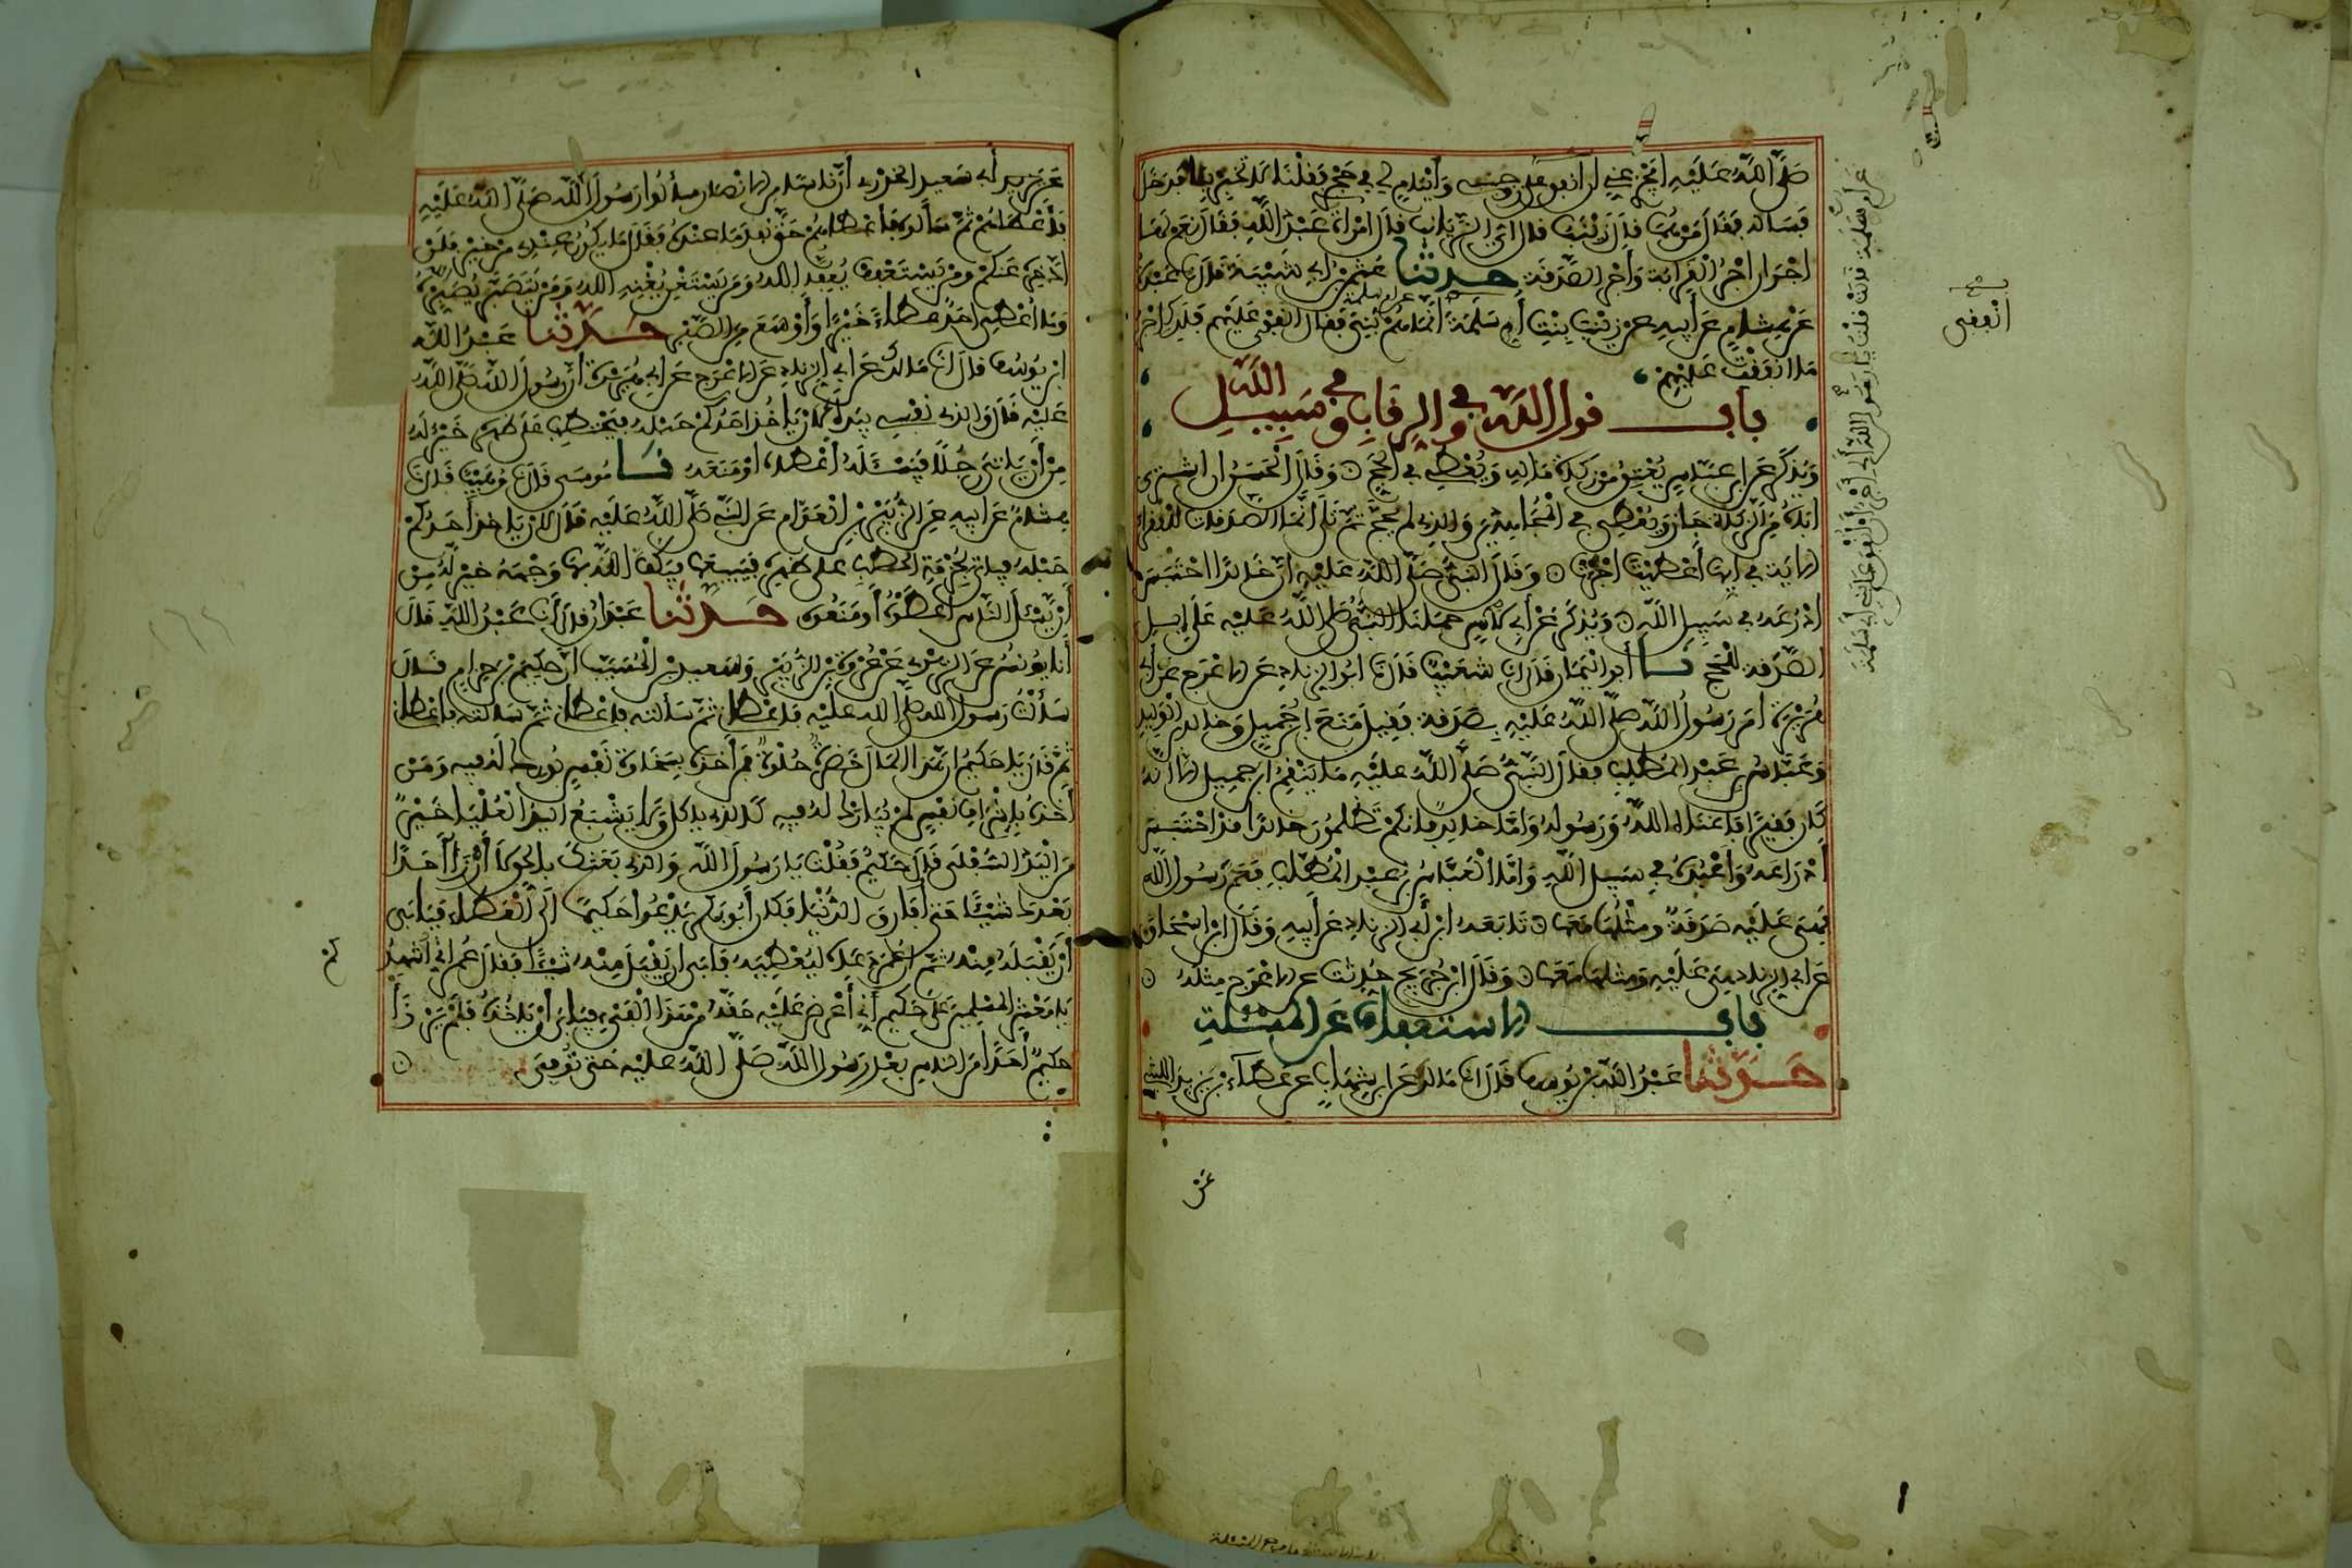 صَلَّى اللَّهُ عَلَيْهِ أَيُجْزِي عَنِّي أن أنفق على زوجي وَأيتام لي في حجري فَقُلْنَا لا تخبر بنا فدخل
فسأله فقال من هما قال زينب قال أي الزيانب قال امرأة عبد الله فقال نعم لها
أجران أجر القرابة وأجر الصدقة حدثنا عثمن بن أبي شيبة قال نا عبدة
عن هشام عن أبيه عن زينب بنت أم سلمة انما هم بني فقال انفقي عليهم فلك أجر
ما انفقت عليهم
باب قول الله وفي الرقاب وفي سبيل الله
ويذكر عن ابن عباس يعتق من زكاة ماله ويعطي في الحج وقال الحسن ان اشترى
اباه من الزكاة جاز ويعطي في المجاهدين والذي لم يحج ثم تلا انما الصدقات للفقراء
الاية في أيها أعطيت أجزت وقال النبي صلى الله عليه إن خالدا احتبس
أدرعه في سبيل الله ويذكر عن أبي لاس حملنا النبي صلى الله عليه على إبل
الصدقة للحج نا أبو اليمان قال انا شعيب قال نا ابو الزناد عن الاعرج عن أبي
هريرة أمر رسول الله صلى الله عليه بصدقة فقيل منع ابن جميل وخالد بن الوليد
وعباس بن عبد المطلب فقال النبي صلى الله عليه ما ينقم ابن جميل إلا أنه
كان فقيرا فأغناه الله ورسوله وأما خالد فإنكم تظلمون خالدا قد احتبس
أدراعه وأعبده في سبيل الله وأما العباس بن عبد المطلب فعم رسول الله
فهي عليه صدقة ومثلها معها تابعه ابن أبي الزناد عن أبيه وقال ابن اسحاق
عن أبي الزناد هي عليه ومثلها معها وقال ابن جريج حدثت عن الاعرج مثله
باب الاستعفاف عن المسئلة
حدثنا عبد الله بن يوسف قال انا مالك عن ابن شهاب عن عطاء بن يزيد الليثي
عن أم سلمة قالت قلت يا رسول الله ألي أجر أن أنفق على بني أبي سلمة
انفقي
عن
عن أبي سعيد الخدري أن ناسا من الانصار سألوا رسول الله صلى الله عليه
فأعطاهم ثم سألوه فأعطاهم حتى نفد ما عنده فقال ما يكون عندي من خير فلن
أدخره عنكم ومن يستعفف يعفه الله ومن يستغن يغنه الله ومن يتصبر يصبره
وما أعطي أحد عطاء خيرا وأوسع من الصبر حدثنا عبد الله
ابن يوسف قال انا مالك عن أبي الزناد عن الاعرج عن أبي هريرة أن رسول الله صلى الله
عليه قال والذي نفسي بيده لأن يأخذ أحدكم حبله فيحتطب على ظهره خير له
من أن يأتي رجلا فيسئله أعطاه أو منعه نا موسى قال نا وهيب قال نا
هشام عن أبيه عن الزبير بن العوام عن النبي صلى الله عليه قال لان ياخذ أحدكم
حبله فياتي بحزمة الحطب على ظهره فيبيعها فيكف الله بها وجهه خير له من
أن يسئل الناس أعطوه أو منعوه حدثنا عبدان قال انا عبد الله قال
أنا يونس عن الزهري عن عروة بن الزبير وسعيد بن المسيب أن حكيم بن حزام قال
سألت رسول الله صلى الله عليه فأعطاني ثم سألته فأعطاني ثم سألته فأعطاني
ثم قال يا حكيم إن هذا المال خضرة حلوة فمن أخذه بسخاوة نفس بورك له فيه ومن
أخذه بإشراف نفس لم يبارك له فيه كالذي ياكل ولا يشبع اليد العليا خير
من اليد السفلى قال حكيم فقلت يا رسول الله والذي بعثك بالحق لا أرزأ أحدا
بعدك شيئا حتى أفارق الدنيا فكان أبو بكر يدعوا حكيما الى العطاء فيأبى
أن يقبله منه ثم إن عمر دعاه ليعطيه فأبى ان يقبل منه شيئا فقال عمر اني أشهدكم
يا معشر المسلمين على حكيم أني أعرض عليه حقه من هذا الفيء فيأبى أن يأخذه فلم يرزأ
حكيم أحدا من الناس بعد رسول الله صلى الله عليه حتى توفي